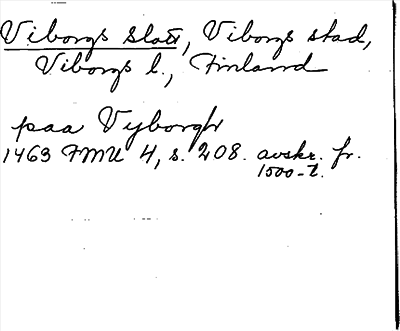 Viborgs slott, Viborgs stad,
Viborgs l., Finland
paa Vyborgh
1463 FMU 4, s. 208. avskr. fr.
1500-t.